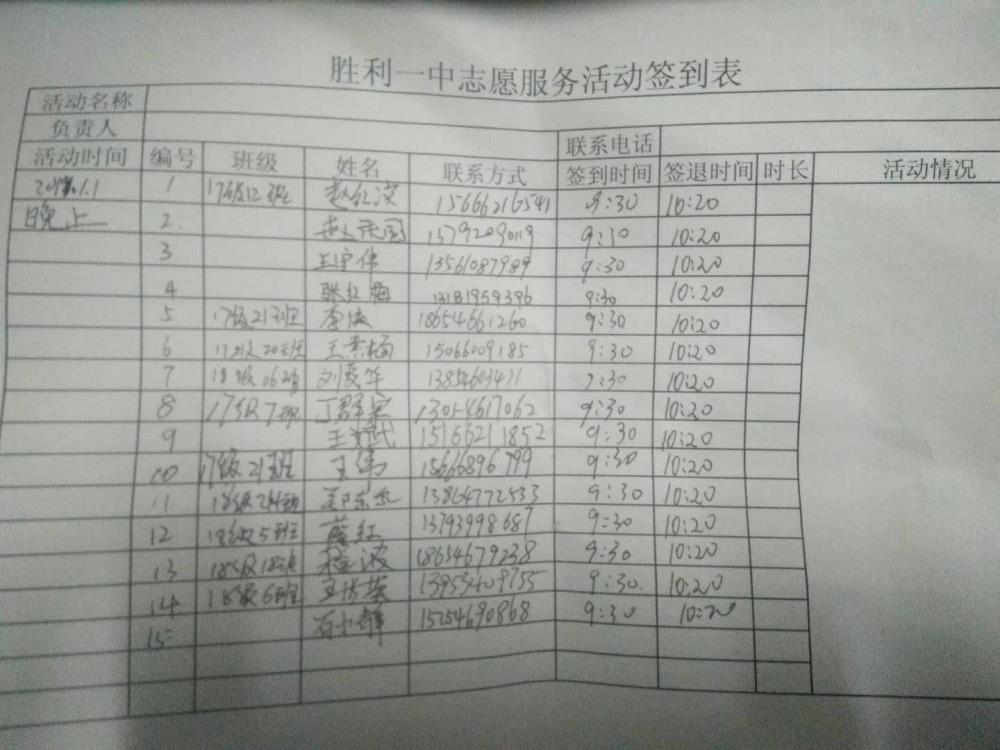 胜利一中志愿服务活动签到表
活动名称
负责人 联系电话
活动时间 编号 班级 姓名 联系方式 签到时间 签退时间 时长 活动情况
1 17级12班 赵红波 15666216541 9:30 10:20
晚上 2 9:30 10:20
3 王宇伟 13561087989 9:30 10:20
4 张红梅 13181959396 9:30 10:20
5 17级21班 李俊 18654661260 9:30 10:20
6 17级20班 王素梅 15066009185 9:30 10:20
7 18级06班 刘爱华 13854603421 9:30 10:20
8 17级7班 13054617062 9:30 10:20
9 15166211852 9:30 10:20
10 17级21班 王伟 15666896799 9:30 10:20
11 18级24班 13864772533 9:30 10:20
12 18级5班 薛红 13793998687 9:30 10:20
13 18级18班 程波 18654679238 9:30 10:20
14 18级6班 13953409755 9:30 10:20
15 石小静 15254690868 9:30 10:20